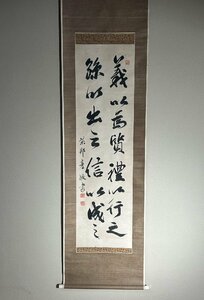 義以爲質禮以行之
孫以出之信以成之